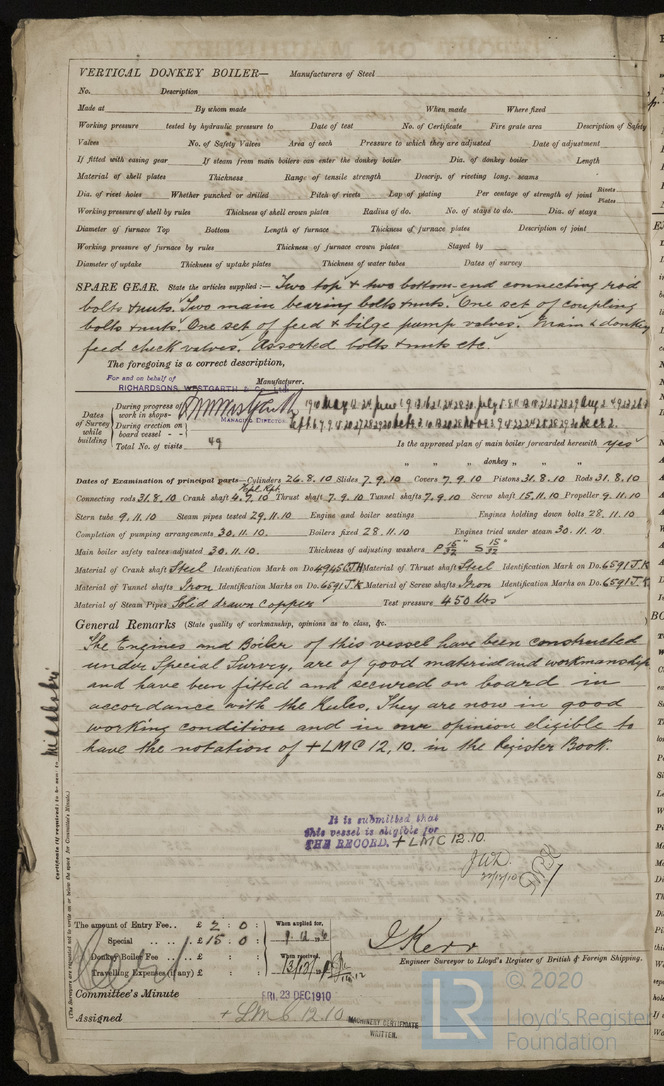 VERTICAL DONKEY BOILER— Manufacturers of Steel
No. Description
Made at By whom made When made Where fixed
Working pressure tested by hydraulic pressure to Date of test No. of Certificate Fire grate area Description of Safety
Valves No. of Safety Valves Area of each Pressure to which they are adjusted Date of adjustment
If fitted with easing gear If steam from main boilers can enter the donkey boiler Dia. of donkey boiler Length
Material of shell plates Thickness Range of tensile strength Descrip. of riveting long. seams
Dia. of rivet holes Whether punched or drilled Pitch of rivets Lap of plating Per centage of strength of joint Rivets Plates
Working pressure of shell by rules Thickness of shell crown plates Radius of do. No. of stays to do. Dia. of stays
Diameter of furnace Top Bottom Length of furnace Thickness of furnace plates Description of joint
Working pressure of furnace by rules Thickness of furnace crown plates Stayed by
Diameter of uptake Thickness of uptake plates Thickness of water tubes Dates of survey
SPARE GEAR. State the articles supplied:— Two top & two bottom-end connecting rod
bolts & nuts. Two main bearing bolts & nuts. One set of coupling
bolts & nuts. One set of feed & bilge pump valves. Main & donkey
feed check valves. Assorted bolts & nuts etc.
The foregoing is a correct description,
For and on behalf of
RICHARDSONS, WESTGARTH & Co. Ltd. Manufacturer.
MANAGING DIRECTOR
Dates of Survey while building
During progress of work in shops - -
During erection on board vessel - - -
Total No. of visits 49 Is the approved plan of main boiler forwarded herewith yes
" " " donkey " " "
Dates of Examination of principal parts—Cylinders 26.8.10 Slides 7.9.10 Covers 7.9.10 Pistons 31.8.10 Rods 31.8.10
Connecting rods 31.8.10 Crank shaft 4.7.10 Thrust shaft 7.9.10 Tunnel shafts 7.9.10 Screw shaft 15.11.10 Propeller 9.11.10
Stern tube 9.11.10 Steam pipes tested 29.11.10 Engine and boiler seatings Engines holding down bolts 28.11.10
Completion of pumping arrangements 30.11.10. Boilers fixed 28.11.10 Engines tried under steam 30.11.10.
Main boiler safety valves adjusted 30.11.10. Thickness of adjusting washers P 15/32" S 15/32"
Material of Crank shaft Steel Identification Mark on Do. Material of Thrust shaft Steel Identification Mark on Do. 6591 J.K
Material of Tunnel shafts Iron Identification Marks on Do. 6591 J.K Material of Screw shafts Iron Identification Marks on Do. 6591 J.K
Material of Steam Pipes Solid drawn copper Test pressure 450 lbs
General Remarks (State quality of workmanship, opinions as to class, &c.
The Engines and Boiler of this vessel have been constructed
under Special Survey, are of good material and workmanship
and have been fitted and secured on board in
accordance with the Rules. They are now in good
working condition and in our opinion eligible to
have the notation of + LMC 12,10. in the Register Book.
It is submitted that
this vessel is eligible for
THE RECORD. + LMC 12.10.
The amount of Entry Fee. . £ 2 : 0 : When applied for,
Special . . £ 15 : 0 :
Donkey Boiler Fee . . £ : : When received,
Travelling Expenses (if any) £ : :
J Kerr
Engineer Surveyor to Lloyd's Register of British & Foreign Shipping.
Committee's Minute FRI. 23 DEC 1910
Assigned + LMC 12.10
MACHINERY CERTIFICATE
WRITTEN.
Certificate (if required) to be sent to
(The Surveyors are requested not to write on or below the space for Committee's Minute.)
© 2020
LR
Lloyd's Register
Foundation